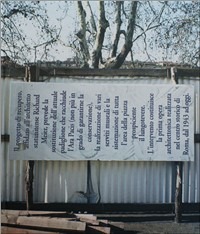 Il progetto di recupero,
affidato all'architetto
statunitense Richard
Meier, prevede la
sostituzione dell'attuale
padiglione che racchiude
l'Ara Pacis (non più in
grado di garantirne la
conservazione),
la realizzazione di vari
servizi museali e la
sistemazione di tutta
l'area della piazza
prospiciente
lungotevere.
L'intervento costituisce
la prima opera
architettonica realizzata
nel centro storico di
Roma, dal 1943 ad oggi.